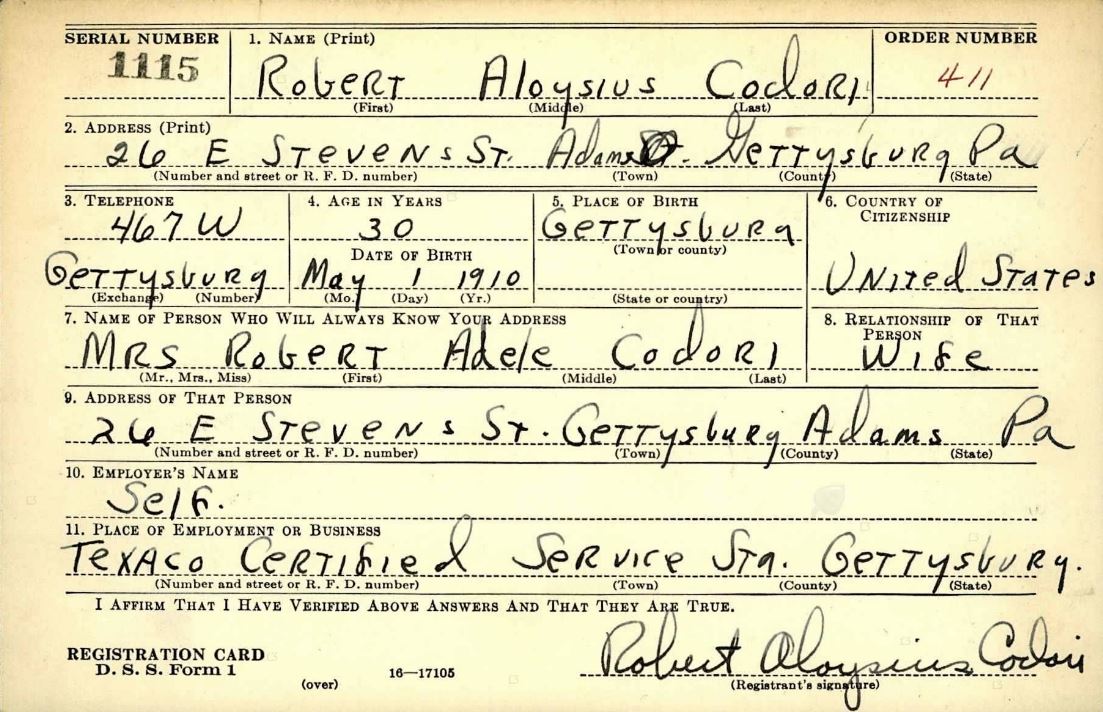 SERIAL NUMBER 1. NAME (Print) ORDER NUMBER
1115 Robert Aloysius Codori 411
(First) (Middle) (Last)
2. ADDRESS (Print)
26 E Stevens St. Adams Gettysburg Pa
(Number and street or R. F. D. number) (Town) (County) (State)
3. TELEPHONE 4. AGE IN YEARS 5. PLACE OF BIRTH 6. COUNTRY OF CITIZENSHIP
467 W 30 Gettysburg
DATE OF BIRTH (Town or county)
Gettysburg May 1 1910 United States
(Exchange) (Number) (Mo.) (Day) (Yr.) (State or country)
7. NAME OF PERSON WHO WILL ALWAYS KNOW YOUR ADDRESS 8. RELATIONSHIP OF THAT PERSON
Mrs Robert Adele Codori Wife
(Mr., Mrs., Miss) (First) (Middle) (Last)
9. ADDRESS OF THAT PERSON
26 E Stevens St. Gettysburg Adams Pa
(Number and street or R. F. D. number) (Town) (County) (State)
10. EMPLOYER'S NAME
Self.
11. PLACE OF EMPLOYMENT OR BUSINESS
Texaco Certified Service Sta. Gettysburg.
(Number and street or R. F. D. number) (Town) (County) (State)
I AFFIRM THAT I HAVE VERIFIED ABOVE ANSWERS AND THAT THEY ARE TRUE.
Robert Aloysius Codori
REGISTRATION CARD
D. S. S. Form 1 (over) 16—17105 (Registrant's signature)